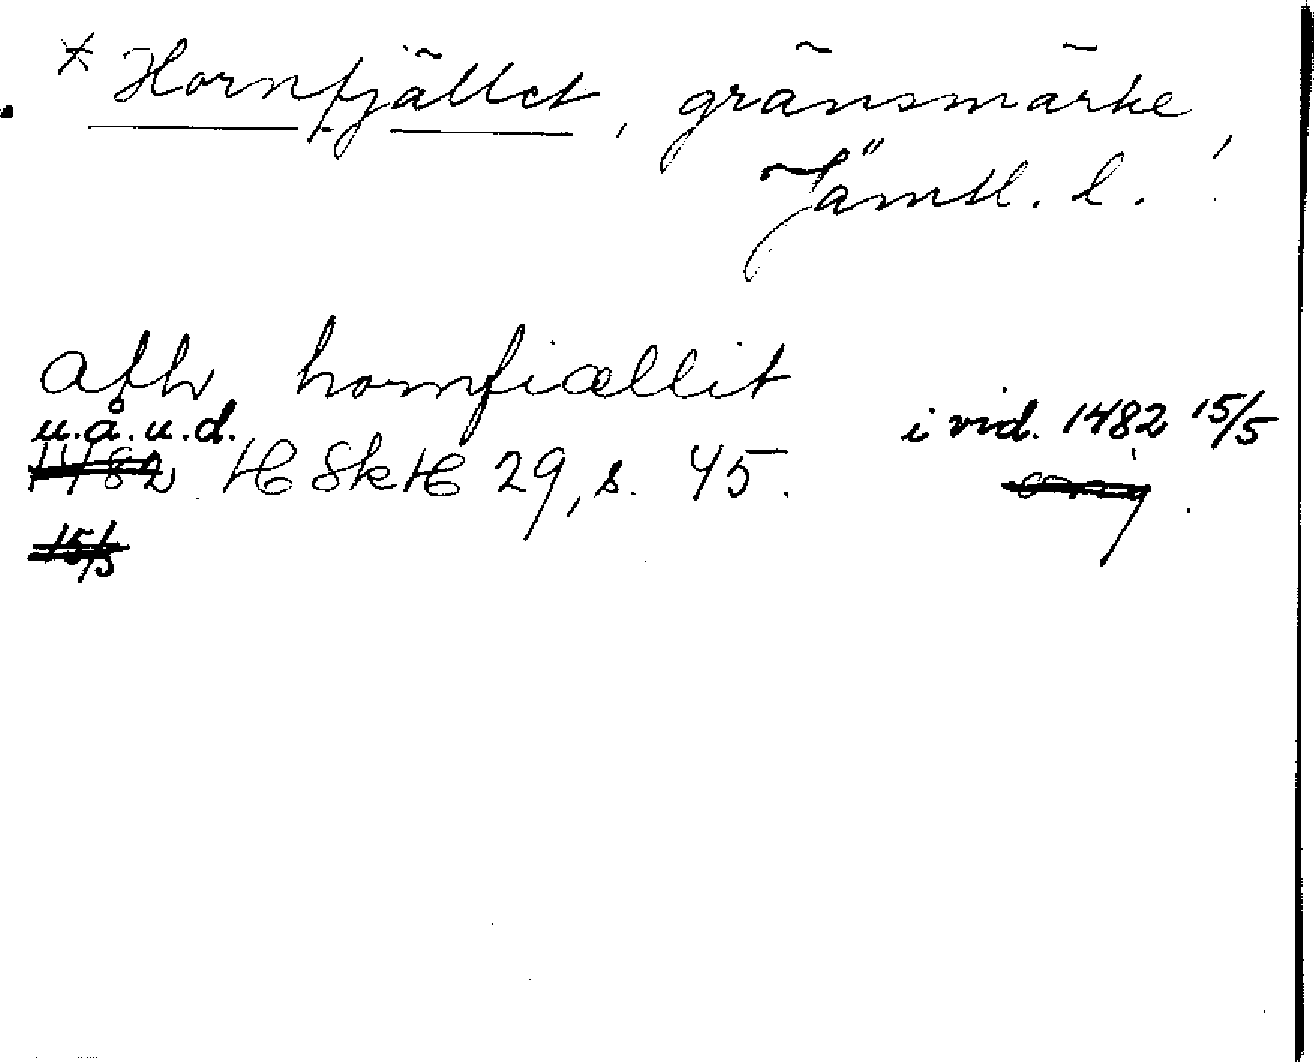 * Hornfjället, gränsmärke,
Jämtl. l.
afh hornfiællit
u.å.u.d. i vid. 1482 15/5
1482 H Sk H 29, s. 45.
15/5